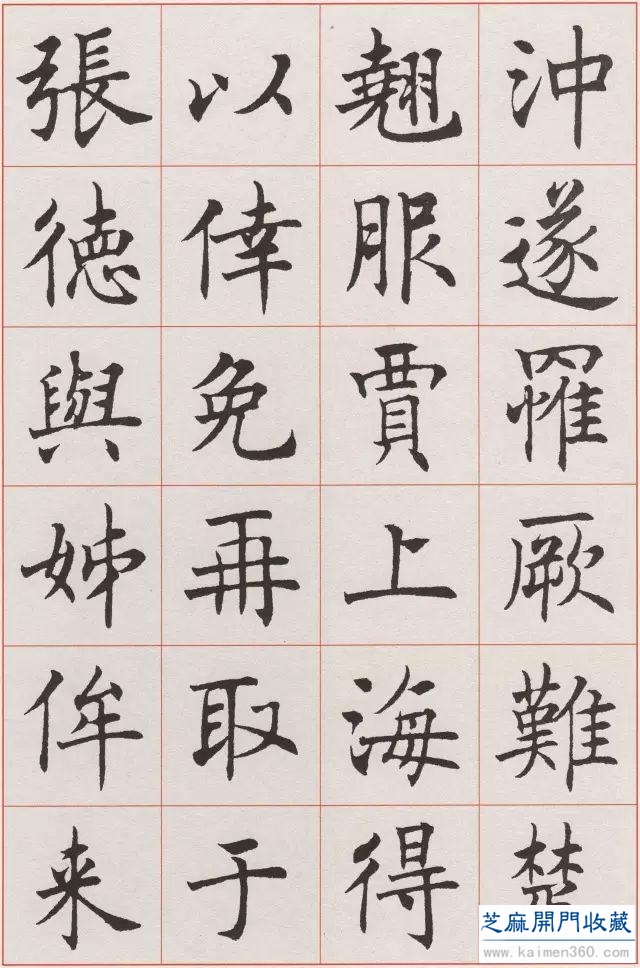 沖遂罹厥難楚
翹服賈上海得
以倖免再取于
張徳與姊侔来
芝麻開門收藏
www.kaimen360.com